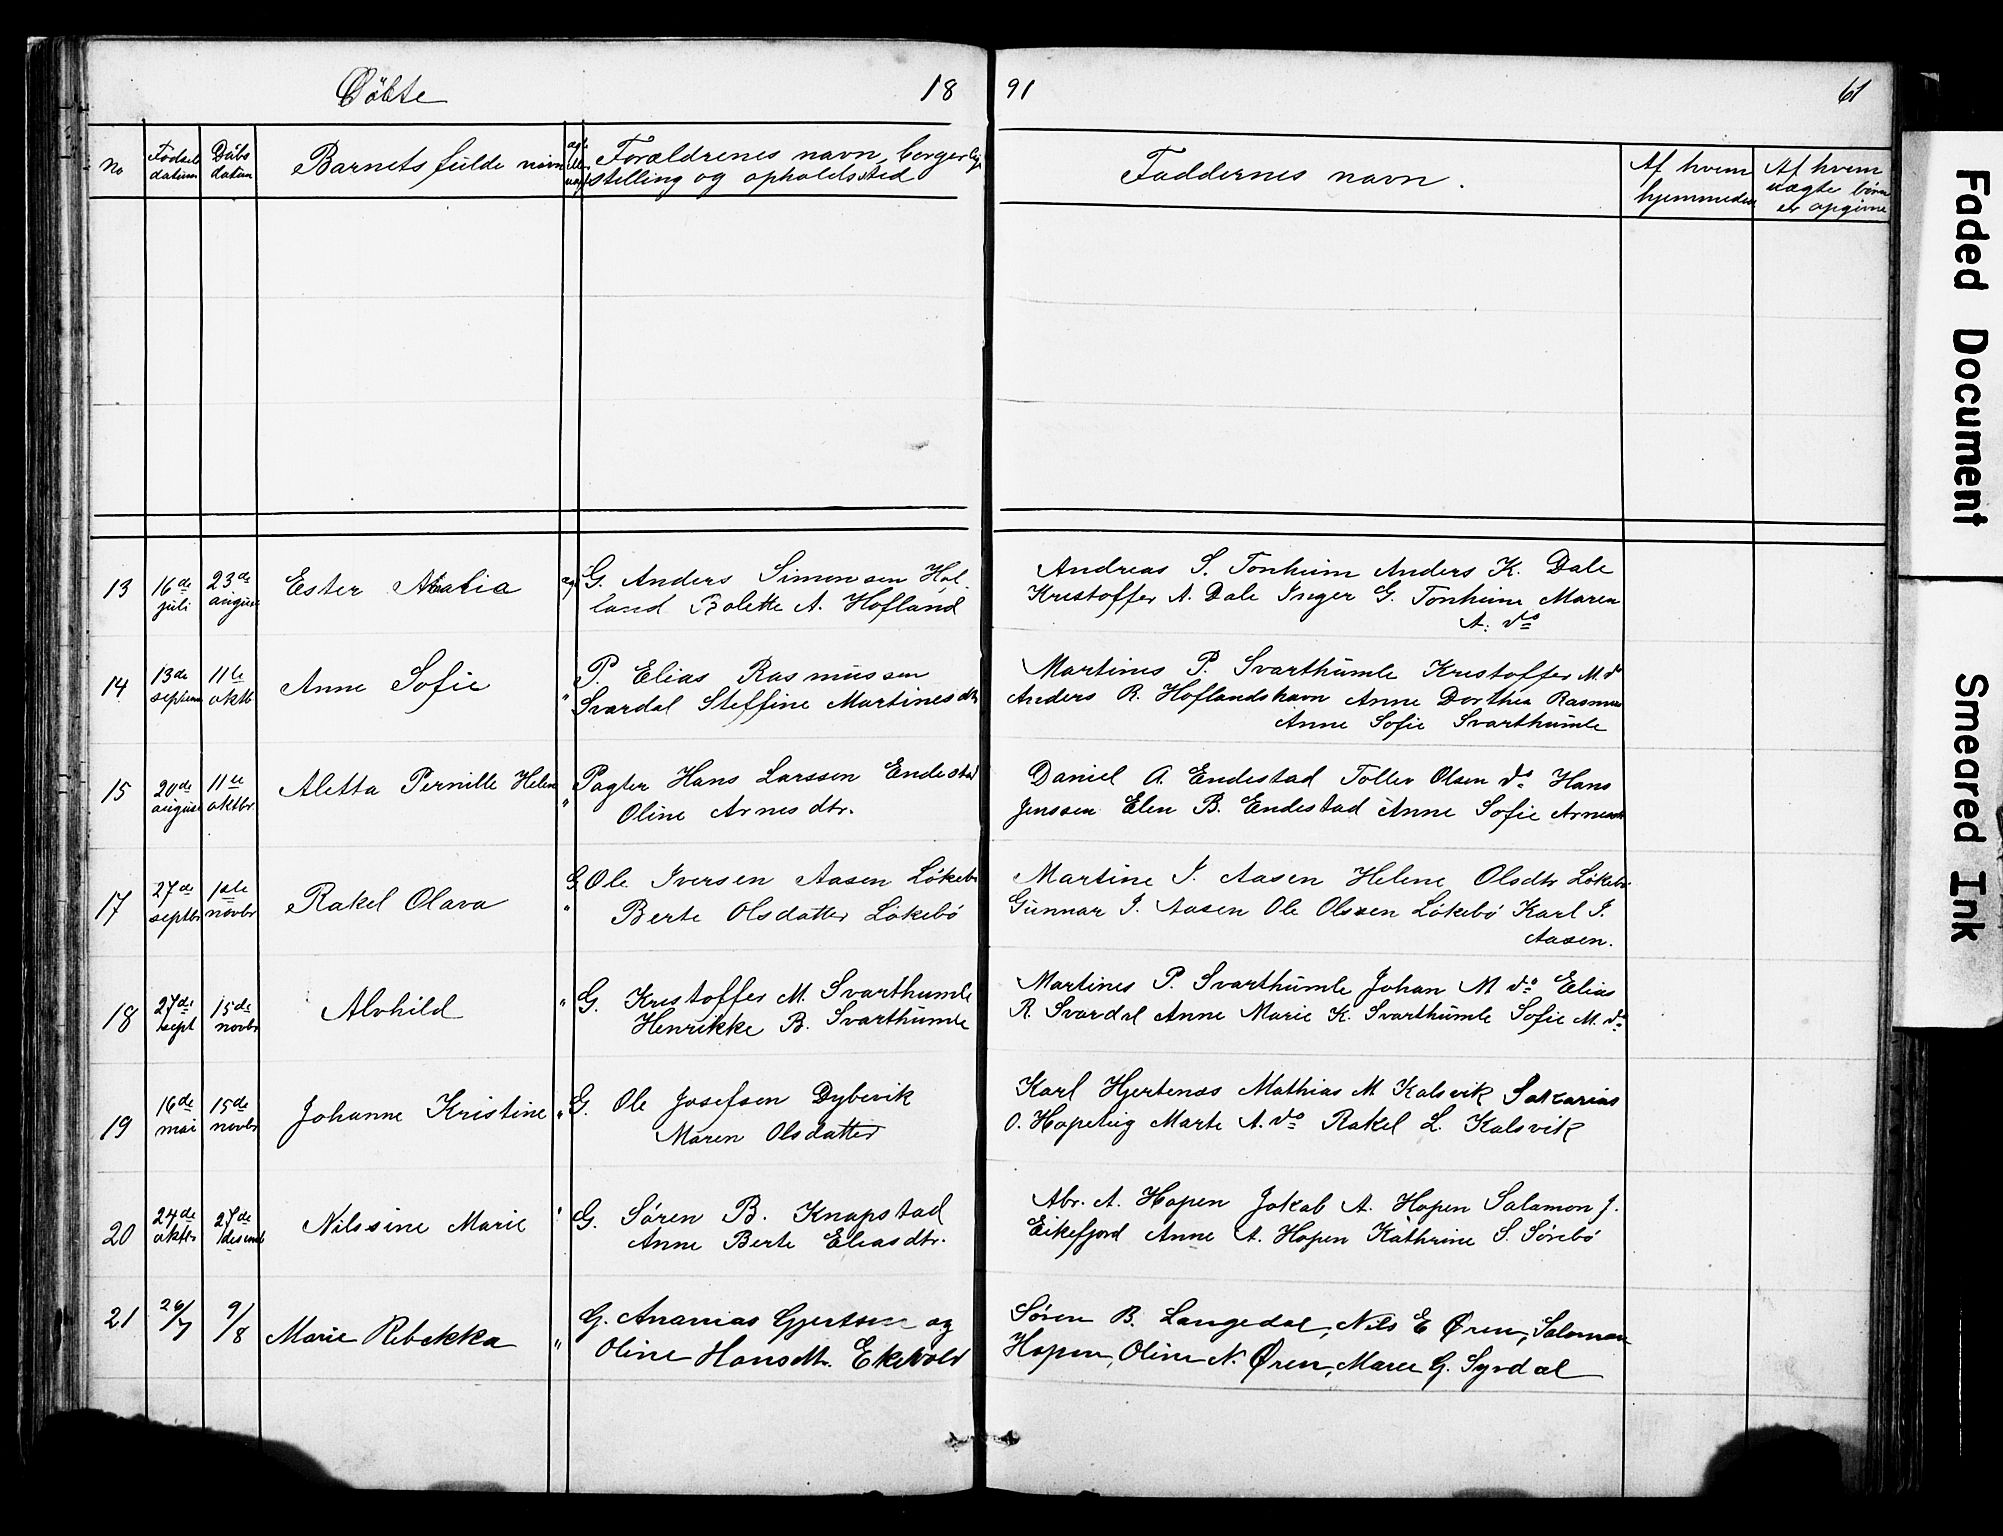 Döbte 1891 61
No Fødsels datum Dåbs datum Barnets fulde navn Forældrenes navn, borgerlige stilling og opholdssted Faddernes navn. Af hvem hjemmedøbt Af hvem uægte børn er opgivne
13 16de juli 23de august Ester Amalia G. Anders Simonsen Hof-
land Bolette A. Hofland
Andreas S. Tonheim Anders K. Dale
Kristoffer A. Dale Inger G. Tonheim Maren
A. do
14 13de septem 11te oktb Anne Sofie " P. Elias Rasmussen
Svardal Steffine Martinesdtr
Martines P. Svarthumle Kristoffer M. do
Anders R. Hoflandshavn Anne Dorthea Rasmus
Anne Sofie Svarthumle
15 20de august 11te oktbr Aletta Pernille Helene " Pagter Hans Larssen Endestad
Oline Arnesdtr.
Daniel A. Endestad Tollev Olsen do Hans
Jenssen Elen B. Endestad Anne Sofie Arnesdt
17 27de septbr 1ste novbr Rakel Olava " G. Ole Iversen Aasen Lökebö
Berte Olsdatter Lökebö
Martine I. Aasen Helene Olsdtr Lökebö
Gunnar I. Aasen Ole Olssen Lökebö Karl I.
Aasen.
18 27de sept 15de novbr Alvhild " G. Kristoffer M. Svarthumle
Henrikke B. Svarthumle
Martines P. Svarthumle Johan M do Elias
R. Svardal Anne Marie K. Svarthumle Sofie M. do
19 16de mai 15de novbr Johanne Kristine " G. Ole Josefsen Dybevik
Maren Olsdatter
Karl Hjertenæs Mathias M Kalsvik Sakarias
O. Hopeteig Marte A. do Rakel L. Kalsvik
20 24de oktbr 27de desemb Nilssine Marie " G. Sören B. Knapstad
Anne Berte Eliasdtr.
Abr. A. Hopen Jakob A. Hopen Salamon J.
Eikefjord Anne A. Hopen Kathrine S. Sörebö
21 26/7 9/8 Marie Rebekka " G. Ananias Gjertsen og
Oline Hansdtr. Ekevold
Søren B. Langedal, Nils E Øren, Salomon
Hopen, Oline N. Øren, Maren G. Syrdal
Faded Document
Smeared Ink